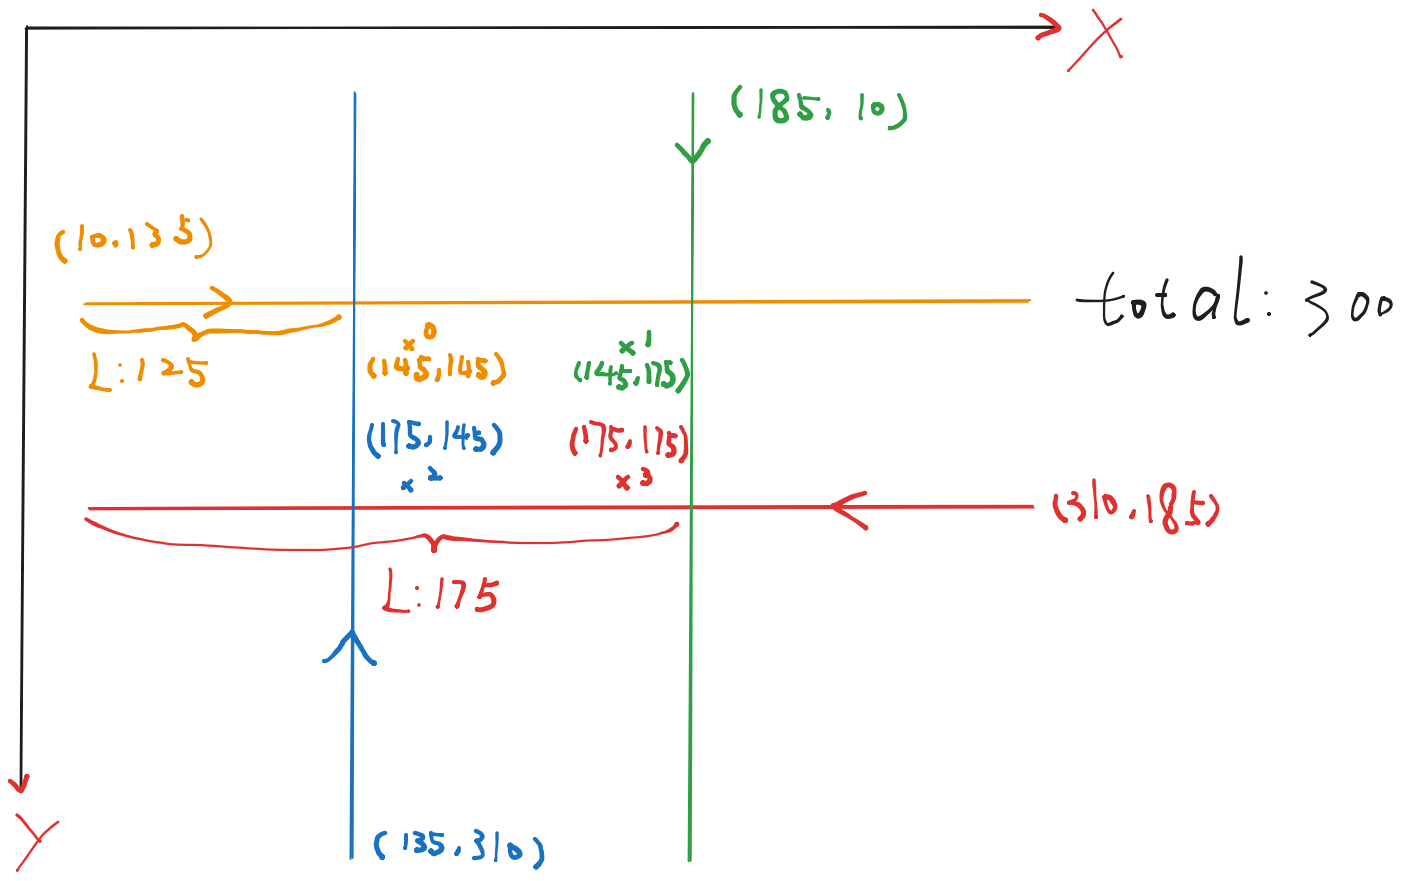 X
(185, 10)
(10.135)
total: 300
L:125
0
(145,145)
1
(145,175)
(175,145)
2
(175,175)
3
(310,185)
L:175
Y
(135,310)